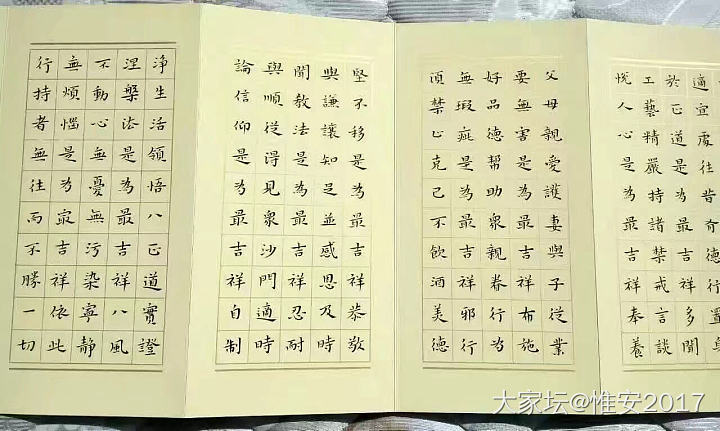 適宜處往昔有德行置身
於正道是為最吉祥多聞
工藝精嚴持諸禁戒言談
悅人心是為最吉祥奉養
父母親愛護妻與子從業
要無害是為最吉祥布施
好品德幫助眾親眷行為
無瑕疵是為最吉祥邪行
須禁止克己不飲酒美德
堅不移是為最吉祥恭敬
與謙讓知足並感恩及時
聞教法是為最吉祥忍耐
與順從得見眾沙門適時
論信仰是為最吉祥自制
淨生活領悟八正道實證
涅槃法是為最吉祥八風
不動心無憂無污染寧靜
無煩惱是為最吉祥依此
行持者無往而不勝一切
大家坛@惟安2017